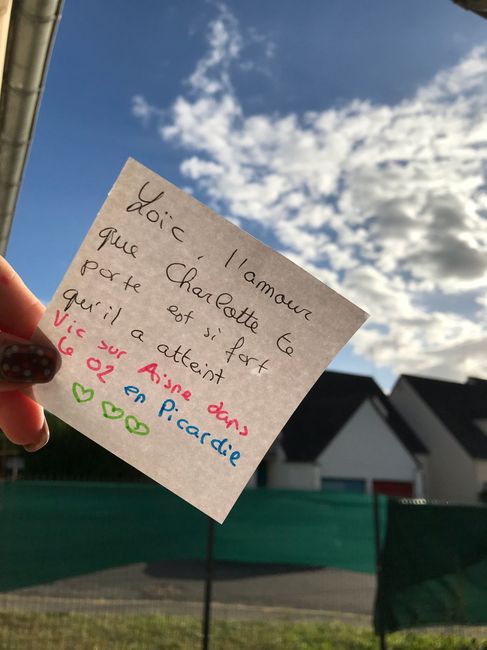 Loïc, l'amour
que Charlotte te
porte est si fort
qu'il a atteint
Vic sur Aisne dans
le 02 en Picardie